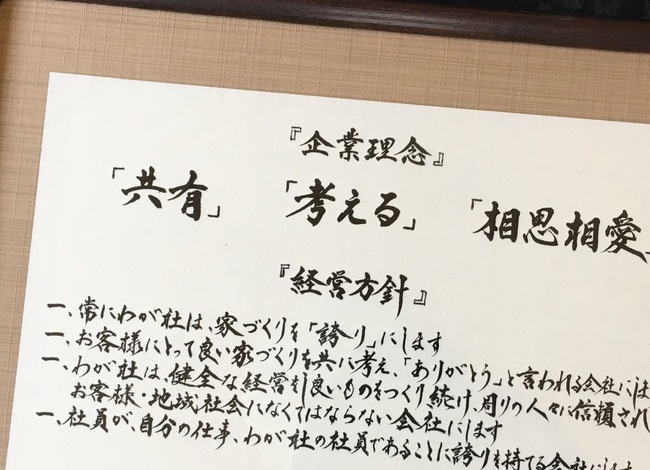 『企業理念』
「共有」 「考える」 「相思相愛
『経営方針』
一、常にわが社は、家づくりを「誇り」にします
一、お客様にとって良い家づくりを共に考え、「ありがとう」と言われる会社には
一、わが社は、健全な経営を良いものをつくり続け、周りの人々に信頼され
お客様・地域社会になくてはならない会社にします
一、社員が、自分の仕事、わが社の社員であることに誇りを持てる会社にします